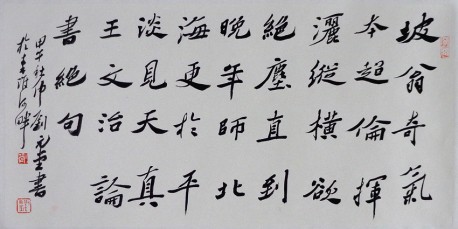 坡翁奇氣
本超倫揮
灑縱橫欲
絕塵直到
晚年師北
海更於平
淡見天真
王文治論
書絕句
甲午劉元堂書
於秦淮河畔